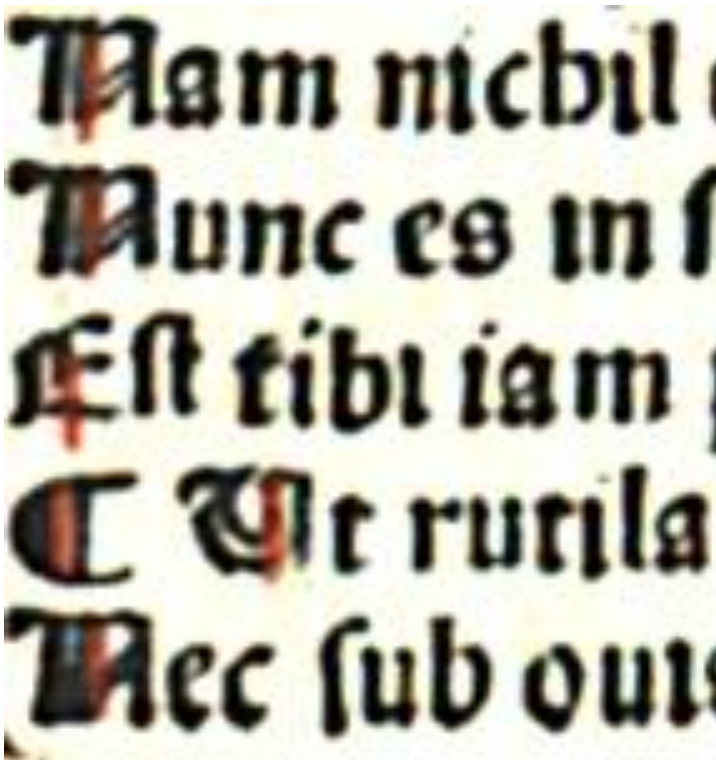 Nam nichil
Nunc es in
Eſt tibi iam
¶ Ut rutila
Nec ſub ouis